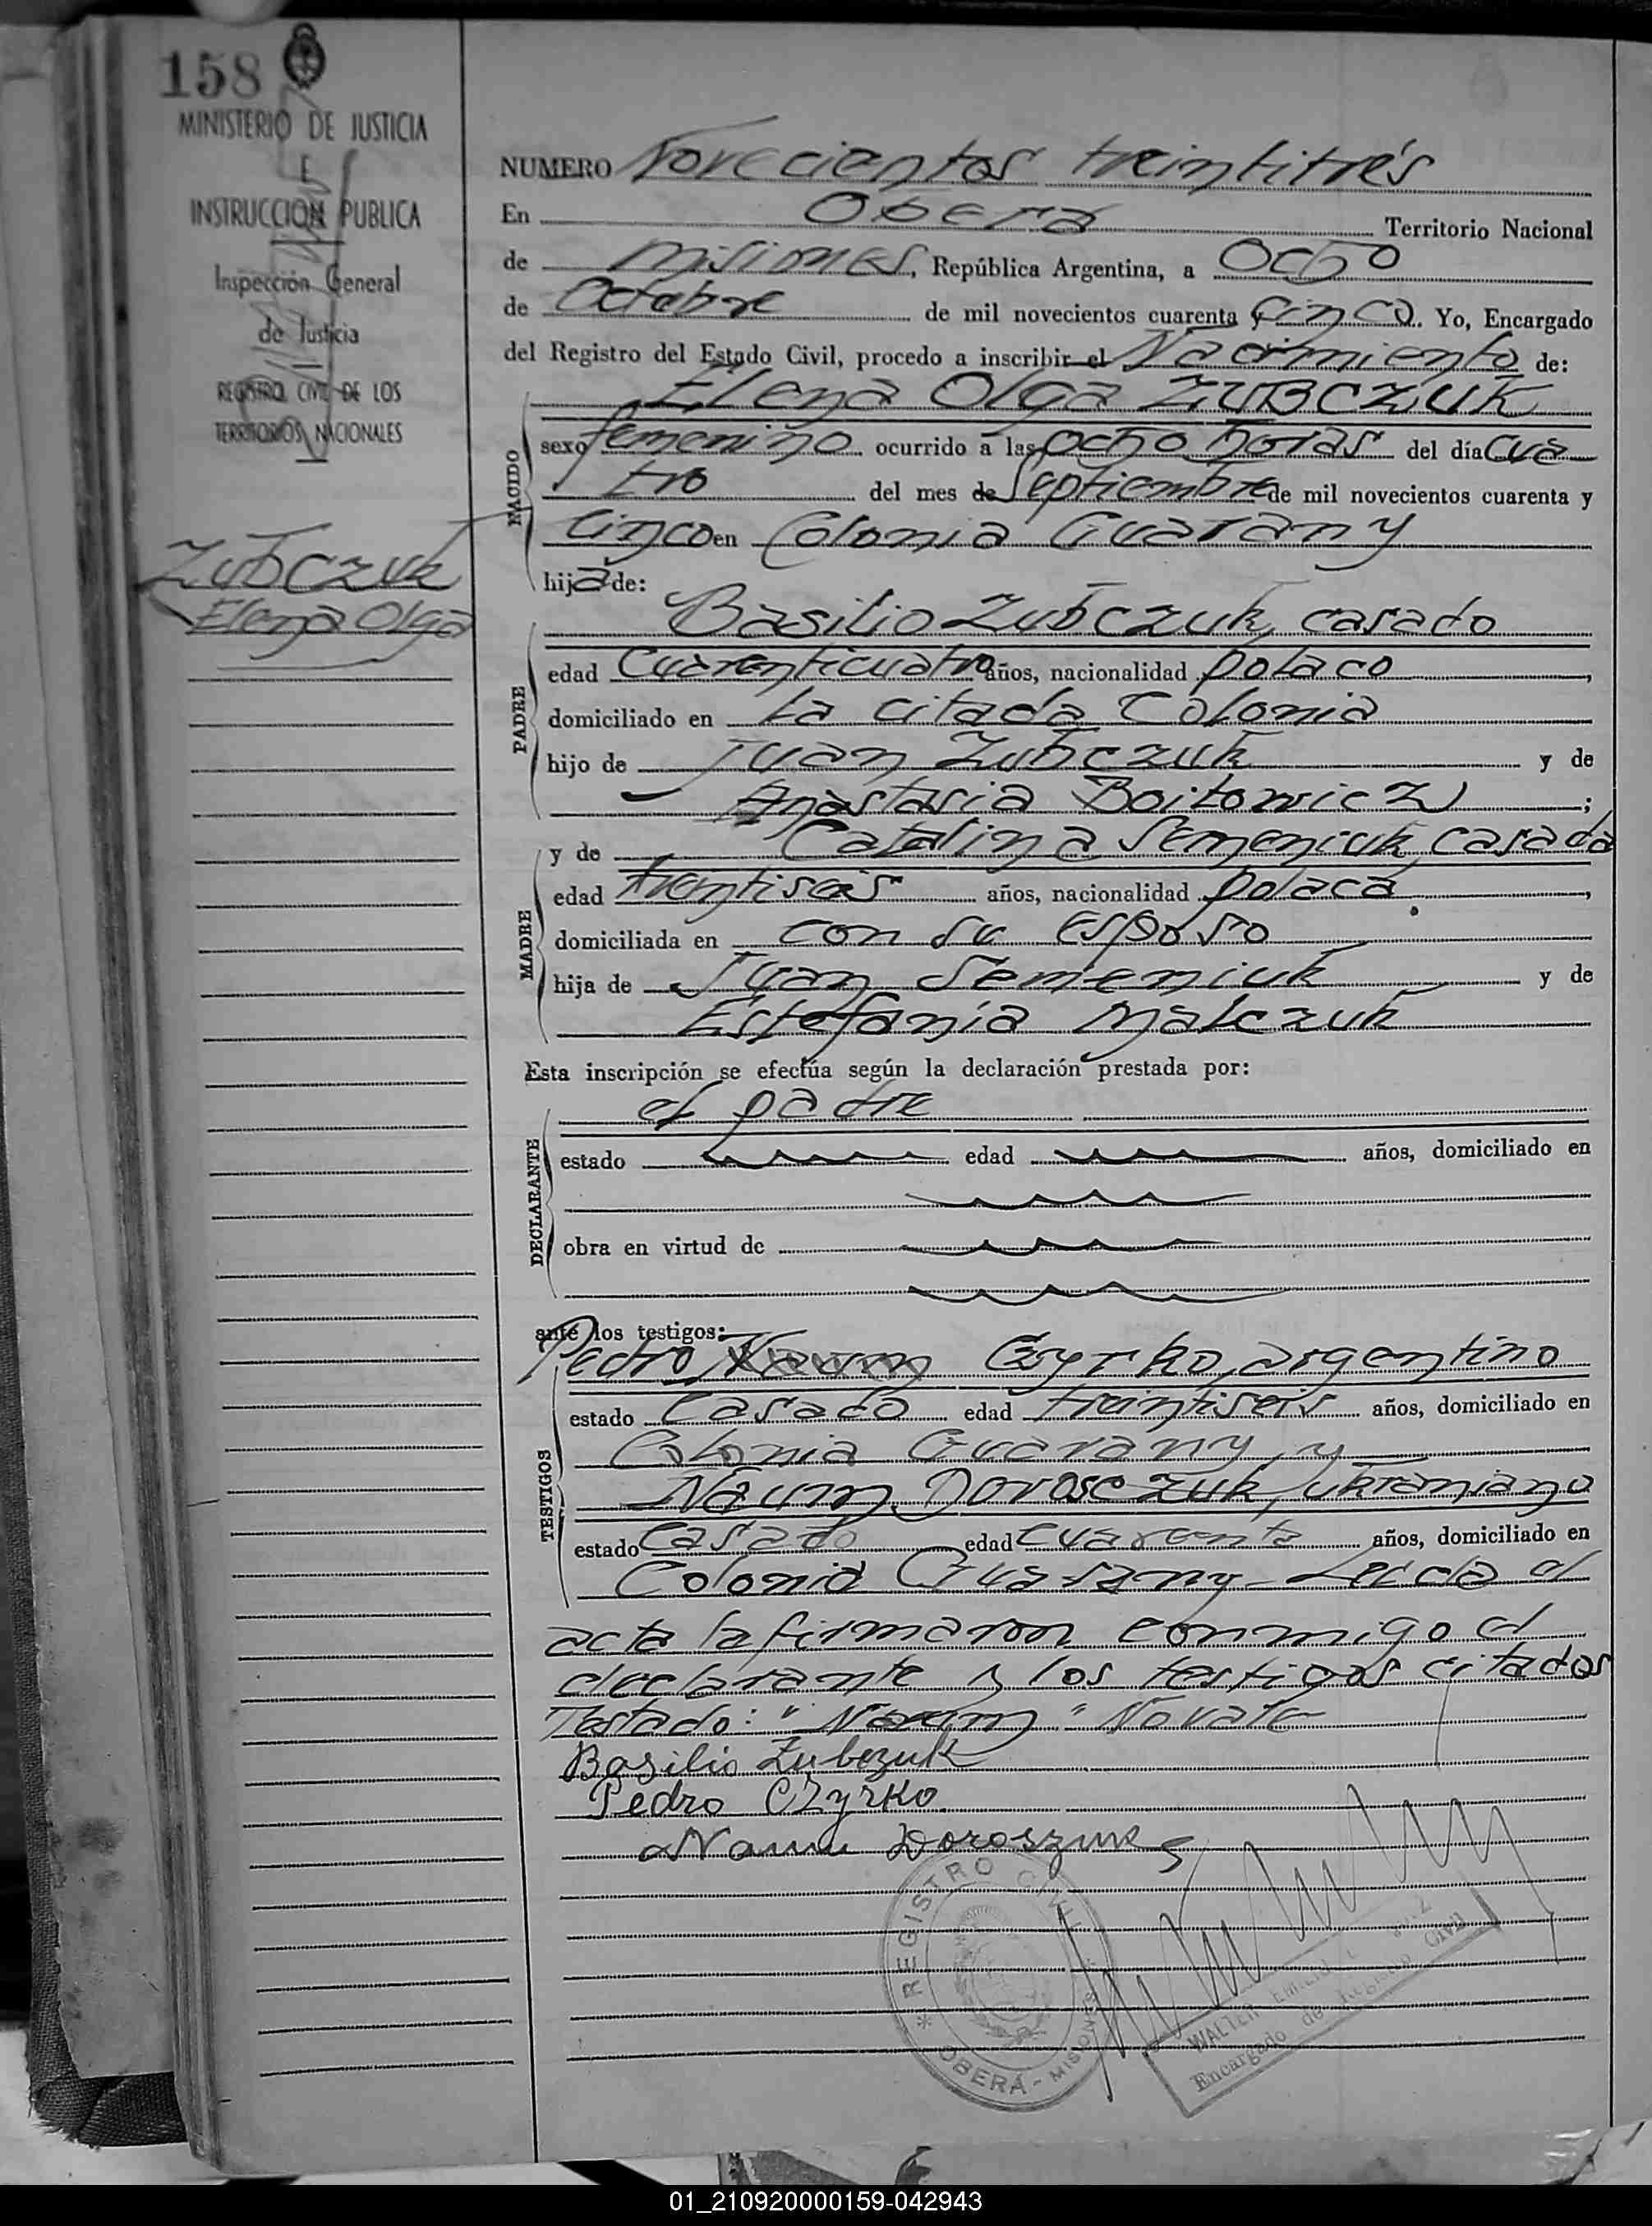 158
MINISTERIO DE JUSTICIA
E
INSTRUCCION PUBLICA
Inspección General
de Justicia
REGISTRO CIVIL DE LOS
TERRITORIOS NACIONALES
Zubczuk
Elena Olga
NUMERO Novecientos treintitrés
En Oberá Territorio Nacional
de Misiones, República Argentina, a Ocho
de Octubre de mil novecientos cuarenta y cinco. Yo, Encargado
del Registro del Estado Civil, procedo a inscribir el Nacimiento de:
Elena Olga ZUBCZUK
NACIDO
sexo femenino ocurrido a las ocho horas del día cua
tro del mes de Septiembre de mil novecientos cuarenta y
cinco en Colonia Guarany
hija de:
PADRE
Basilio Zubczuk, casado
edad Cuarenticuatro años, nacionalidad polaco,
domiciliado en La citada Colonia
hijo de Juan Zubczuk y de
Anastasia Boitowicz;
MADRE
y de Catalina Semeniuk, casada
edad treintiseis años, nacionalidad polaca,
domiciliada en con su esposo
hija de Juan Semeniuk y de
Estefania Malczuk
Esta inscripción se efectúa según la declaración prestada por:
DECLARANTE
el padre
estado edad años, domiciliado en
obra en virtud de
ante los testigos:
TESTIGOS
Pedro Naum Czyrko, argentino
estado Casado edad treintiseis años, domiciliado en
Colonia Guarany, y
Naum Dorosczuk, ukraniano
estado Casado edad cuarenta años, domiciliado en
Colonia Guarany - Leida el
acta la firmaron conmigo el
declarante y los testigos citados
Testado: "Naum" Novale
Basilio Zubczuk
Pedro Czyrko
Naum Doroszuk
* REGISTRO CIVIL
OBERÁ - MISIONES
WALTER
Encargado de Registro Civil
01_210920000159-042943